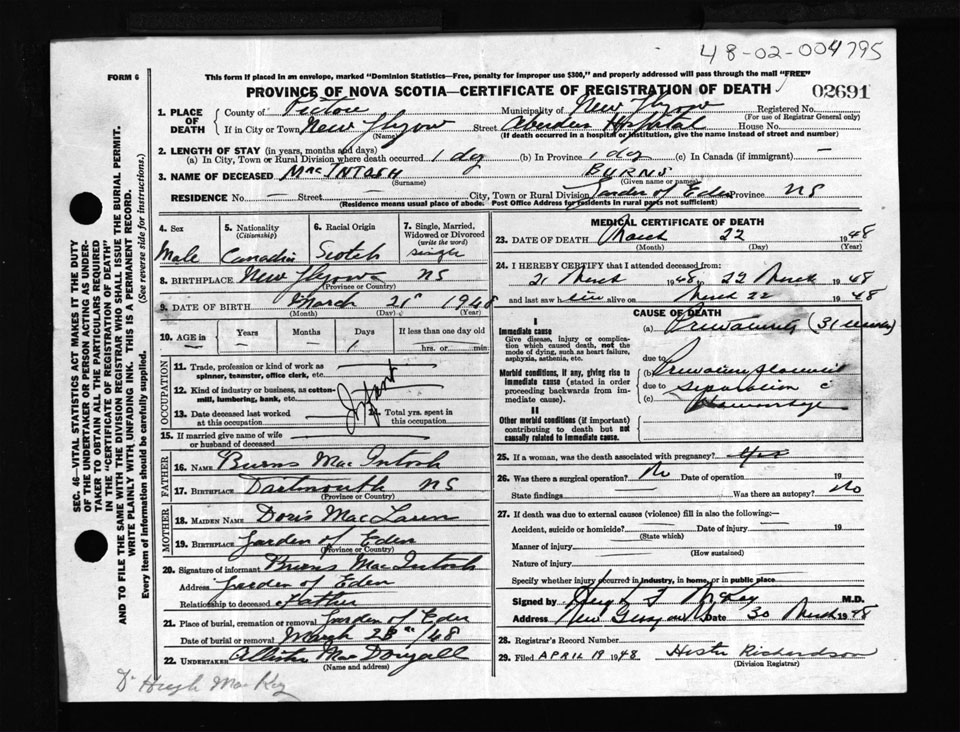 48-02-004795
FORM 6
This form if placed in an envelope, marked "Dominion Statistics—Free, penalty for improper use $300," and properly addressed will pass through the mail "FREE"
PROVINCE OF NOVA SCOTIA—CERTIFICATE OF REGISTRATION OF DEATH
02691
1. PLACE OF DEATH
County of Pictou Municipality of New Glasgow Registered No.
(For use of Registrar General only)
If in City or Town New Glasgow Street Aberdeen Hospital House No.
(Name) (If death occurred in a hospital or institution, give the name instead of street and number)
2. LENGTH OF STAY (in years, months and days)
(a) In City, Town or Rural Division where death occurred 1 day (b) In Province 1 day (c) In Canada (if immigrant) —
3. NAME OF DECEASED MacINTOSH BURNS
(Surname) (Given name or names)
RESIDENCE No. — Street — City, Town or Rural Division Garden of Eden Province NS
(Residence means usual place of abode. Post Office Address for residents in rural parts not sufficient)
4. Sex
Male
5. Nationality
(Citizenship)
Canadian
6. Racial Origin
Scotch
7. Single, Married, Widowed or Divorced
(write the word)
single
8. BIRTHPLACE New Glasgow NS
(Province or Country)
9. DATE OF BIRTH March 21st 1948
(Month) (Day) (Year)
10. AGE in Years Months Days If less than one day
— — 1 hrs. or min.
OCCUPATION
11. Trade, profession or kind of work as spinner, teamster, office clerk, etc.
12. Kind of industry or business, as cotton-mill, lumbering, bank, etc.
Infant
13. Date deceased last worked at this occupation
14. Total yrs. spent in this occupation
15. If married give name of wife or husband of deceased
FATHER
16. NAME Burns MacIntosh
17. BIRTHPLACE Dartmouth NS
(Province or Country)
MOTHER
18. MAIDEN NAME Doris MacLaren
19. BIRTHPLACE Garden of Eden
(Province or Country)
20. Signature of informant Burns MacIntosh
Address Garden of Eden
Relationship to deceased Father
21. Place of burial, cremation or removal Garden of Eden
Date of burial or removal March 23rd/48
22. UNDERTAKER Allister MacDougall
(Name and address)
Dr Hugh MacKay
MEDICAL CERTIFICATE OF DEATH
23. DATE OF DEATH March 22 1948
(Month) (Day) (Year)
24. I HEREBY CERTIFY that I attended deceased from:
21 March 1948 to 22 March 1948
and last saw him alive on March 22 1948
CAUSE OF DEATH
I
Immediate cause
Give disease, injury or complication which caused death, not the mode of dying, such as heart failure, asphyxia, asthenia, etc.
(a) Prematurity (31 weeks)
due to
Morbid conditions, if any, giving rise to immediate cause (stated in order proceeding backwards from immediate cause).
(b) Premature Placental
due to separation c
(c) Haemorrhage
II
Other morbid conditions (if important) contributing to death but not causally related to immediate cause.
25. If a woman, was the death associated with pregnancy? yes
26. Was there a surgical operation? No Date of operation 19
State findings Was there an autopsy? No
27. If death was due to external causes (violence) fill in also the following:—
Accident, suicide or homicide? Date of injury 19
(State which)
Manner of injury
(How sustained)
Nature of injury
Specify whether injury occurred in industry, in home, or in public place
Signed by Hugh F McKay M.D.
Address New Glasgow NS Date 30 March 1948
28. Registrar's Record Number
29. Filed APRIL 19 1948 Hester Richardson
(Division Registrar)
SEC. 46—VITAL STATISTICS ACT MAKES IT THE DUTY
OF THE UNDERTAKER OR PERSON ACTING AS UNDER-
TAKER TO OBTAIN ALL THE PARTICULARS REQUIRED
IN THE "CERTIFICATE OF REGISTRATION OF DEATH"
AND TO FILE THE SAME WITH THE DIVISION REGISTRAR WHO SHALL ISSUE THE BURIAL PERMIT.
WRITE PLAINLY WITH UNFADING INK. THIS IS A PERMANENT RECORD.
Every item of Information should be carefully supplied. (See reverse side for instructions.)